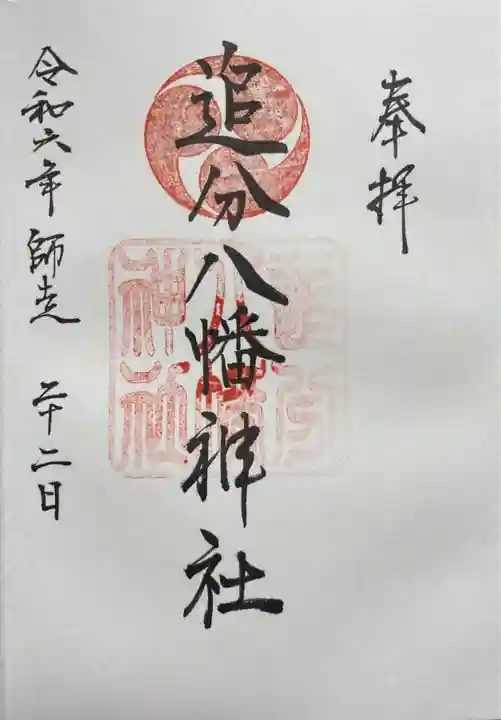 奉拝
追分八幡神社
令和六年 師走 二十二日